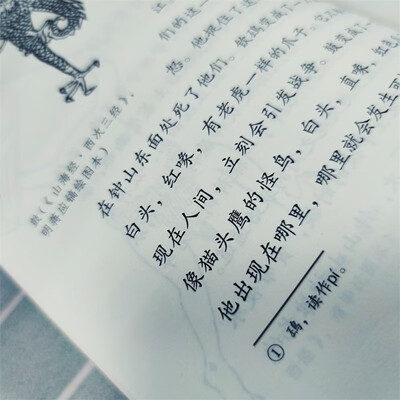 们的这一
怒。他抓住了这
在钟山东面处死了他们。
白头，红喙，有老虎一样的爪子。它
现在人间，立刻会引发战争。鼓变成了
像猫头鹰的怪鸟，白头，直喙，红色
他出现在哪里，哪里就会发生
① ，读作pí。
鼓（《山海经·西次三经》，
明蒋应镐绘图本）